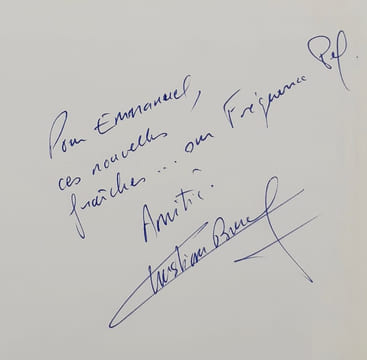 Pour Emmanuel,
ces nouvelles
fraîches... sur Fréquence
Amitié.
Christian